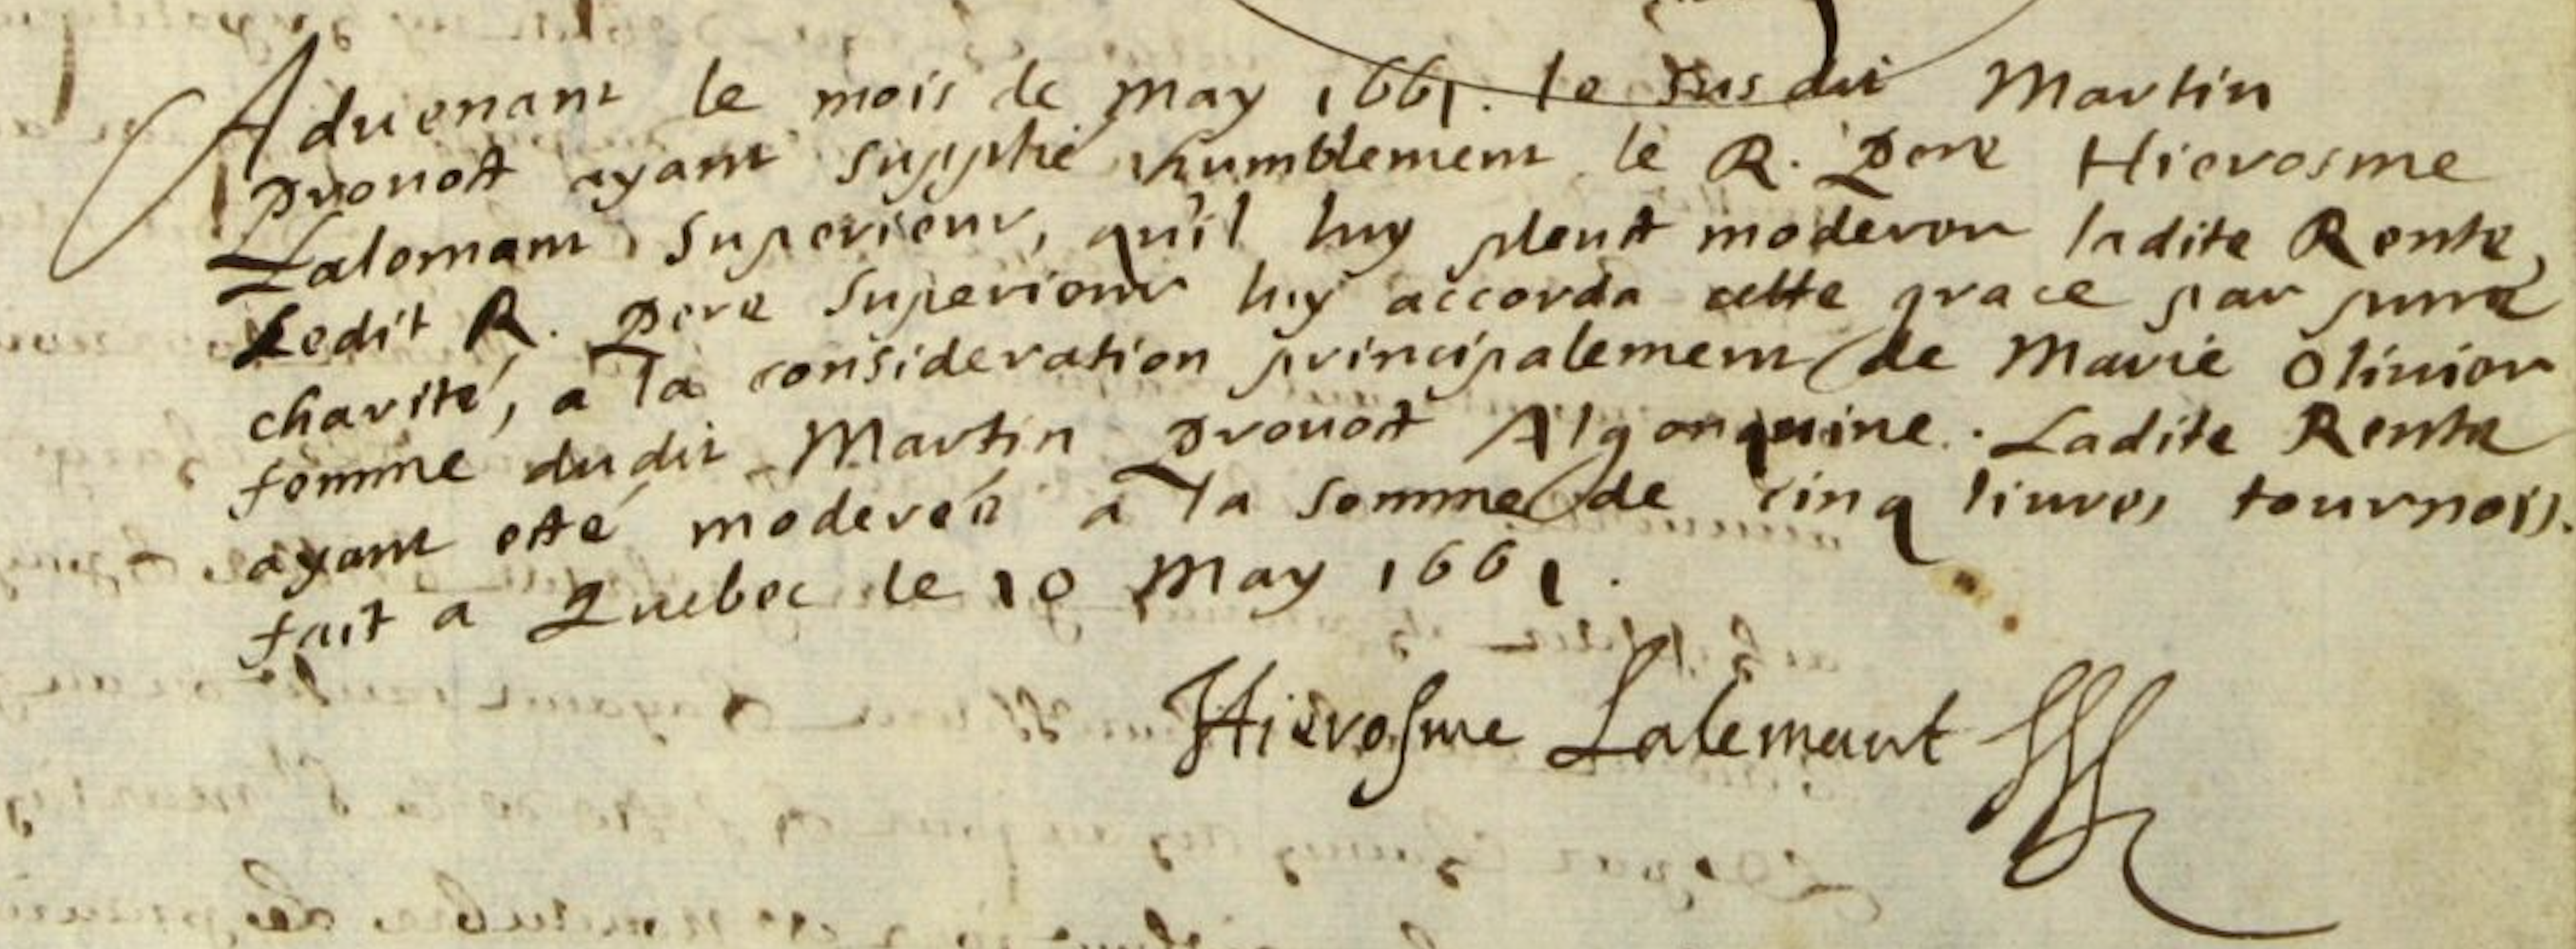 Aduenant le mois de may 1661. le susdit Martin
Prouost ayant supplié humblement le R. Pere Hierosme
Lalemant Superieur, qu'il luy pleust moderer ladite Rente,
Ledit R. Pere Superieur luy accorda cette grace par pure
charité, a la consideration principalement de Marie Oliuier
femme dudit Martin Prouost Algonquine. Ladite Rente
ayant esté moderée a la somme de cinq liures tournois.
fait a Quebec le 10 May 1661.
Hierosme Lalemant